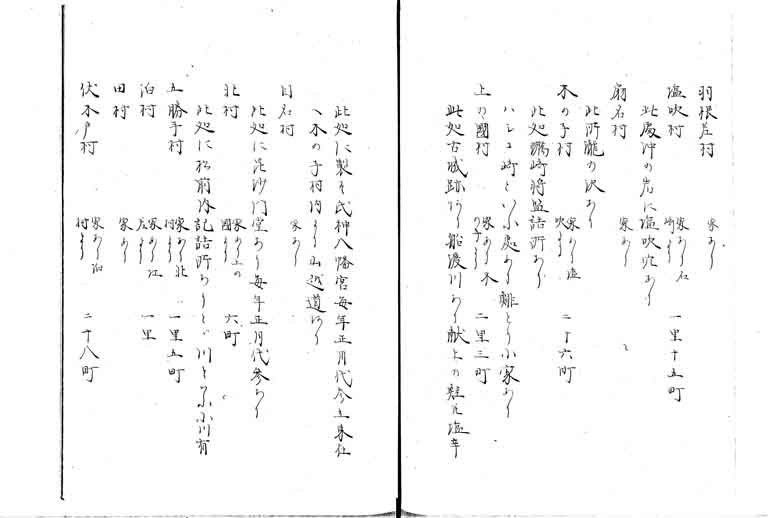 羽根差村 家あり
塩吹村 家あり石崎より 一里十五町
此處沖の岩に塩吹穴あり
扇石村 家あり
此所瀧の沢あり
木の子村 家あり塩吹より 二十六町
此処蠣崎将監詰所あり
ハシコ崎といふ処あり鯡とり小家あり
上の國村 家あり木の子より 二里三町
此処古城跡あり船渡川あり献上の鮭塩辛
此処に製す氏神八幡宮毎年正月代参
木の子村内より山越道あり
目名村 家あり
此処に毘沙門堂あり毎年正月代参あり
北村 家あり上の國より 六町
此処に松前内記詰所あり川といふ小川有
五勝手村 家あり北村より 一里五町
泊村 家あり江差より 一里
田村 家あり
伏木戸村 家あり泊村より 二十八町